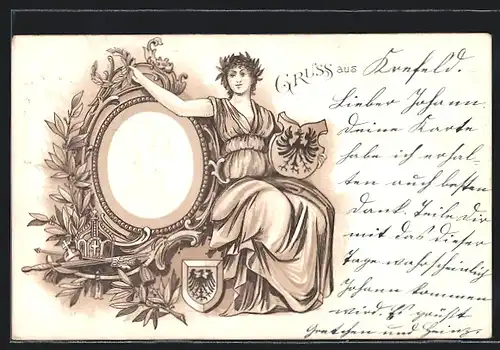 GRUSS aus Krefeld.
Lieber Johann.
Deine Karte
habe ich erhal-
ten auch besten
Dank. Teile Dir
mit das dieser
Tage wahrscheinlich
Johann kommen
wird. Es grüßt
Gretchen und Heinz.